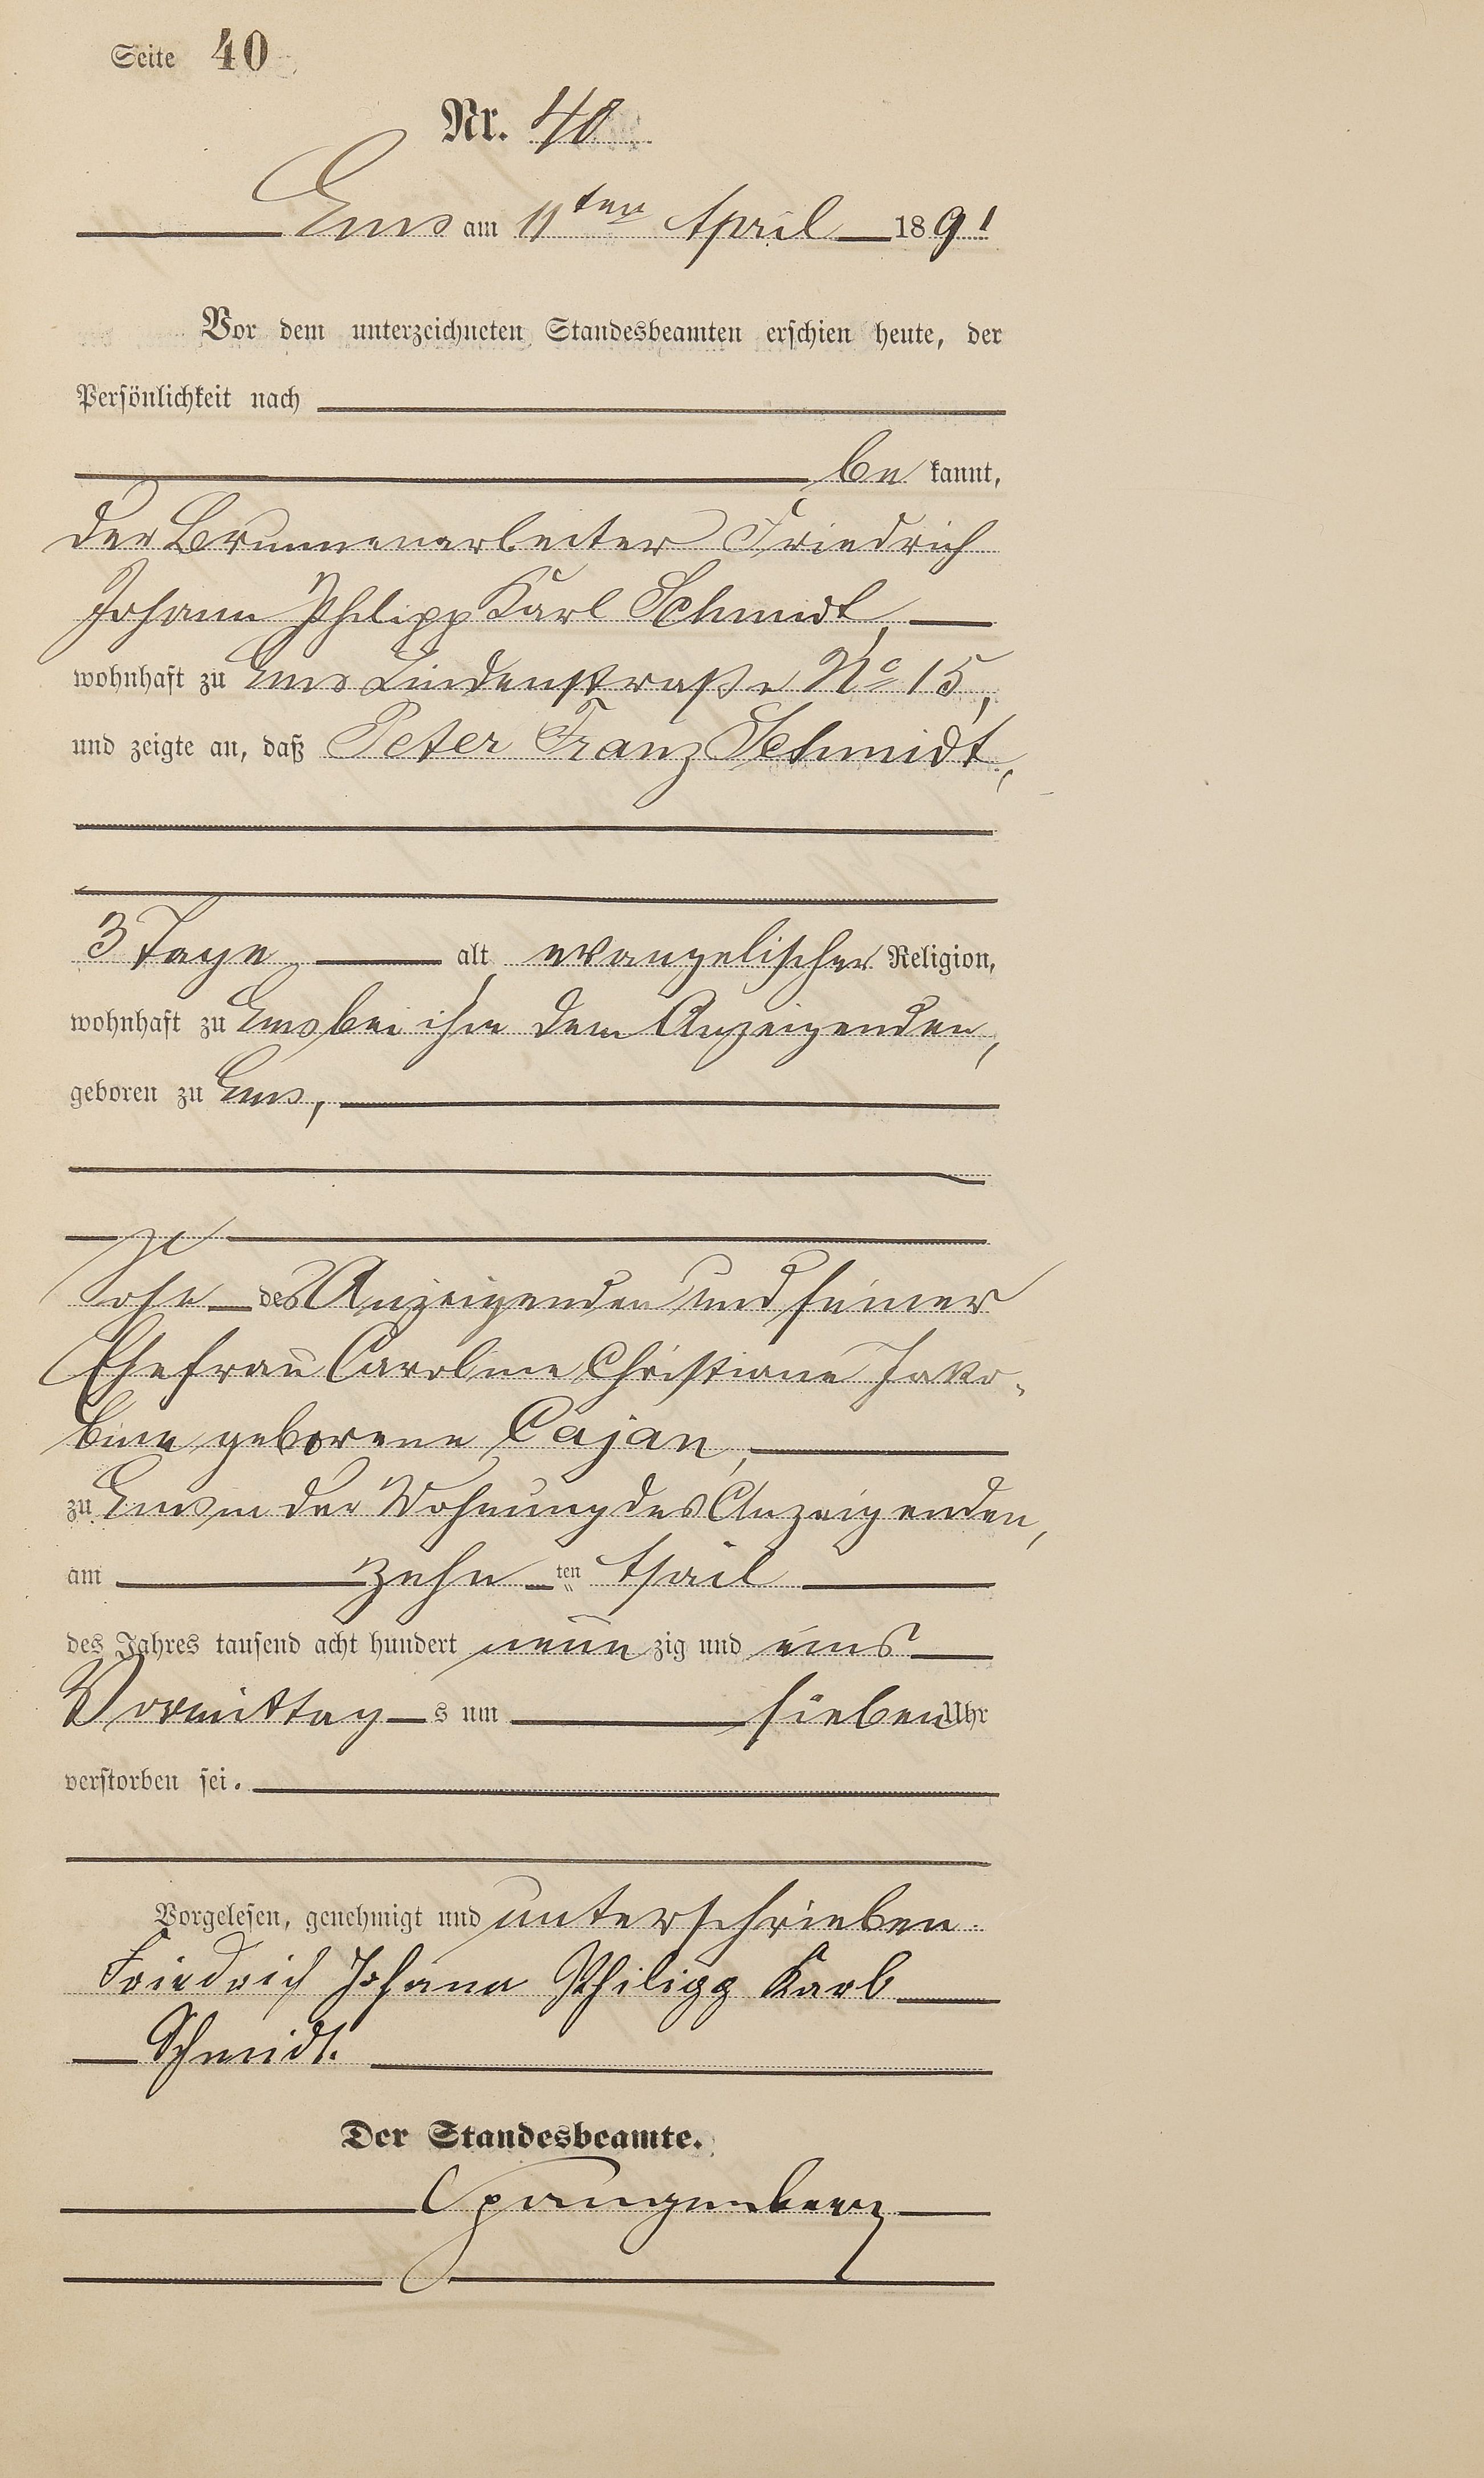 Seite 40
Nr. 40
Ems am 11ten April 1891
Vor dem unterzeichneten Standesbeamten erschien heute, der
Persönlichkeit nach
be kannt,
der Brunnenarbeiter Friedrich
Johann Philipp Karl Schmidt,
wohnhaft zu Ems Lindenstraße No 15,
und zeigte an, daß Peter Franz Schmidt,
3 Tage alt, evangelischer Religion,
wohnhaft zu Ems bei ihm dem Anzeigenden,
geboren zu Ems,
Sohn des Anzeigenden und seiner
Ehefrau Caroline Christiane Jako-
bine geborene Cajan,
zu Ems in der Wohnung des Anzeigenden,
am zehn ten April
des Jahres tausend acht hundert neun zig und eins
Vormittag s um sieben Uhr
verstorben sei.
Vorgelesen, genehmigt und unterschrieben.
Friedrich Johann Philipp Karl
Schmidt.
Der Standesbeamte.
Spangenberg